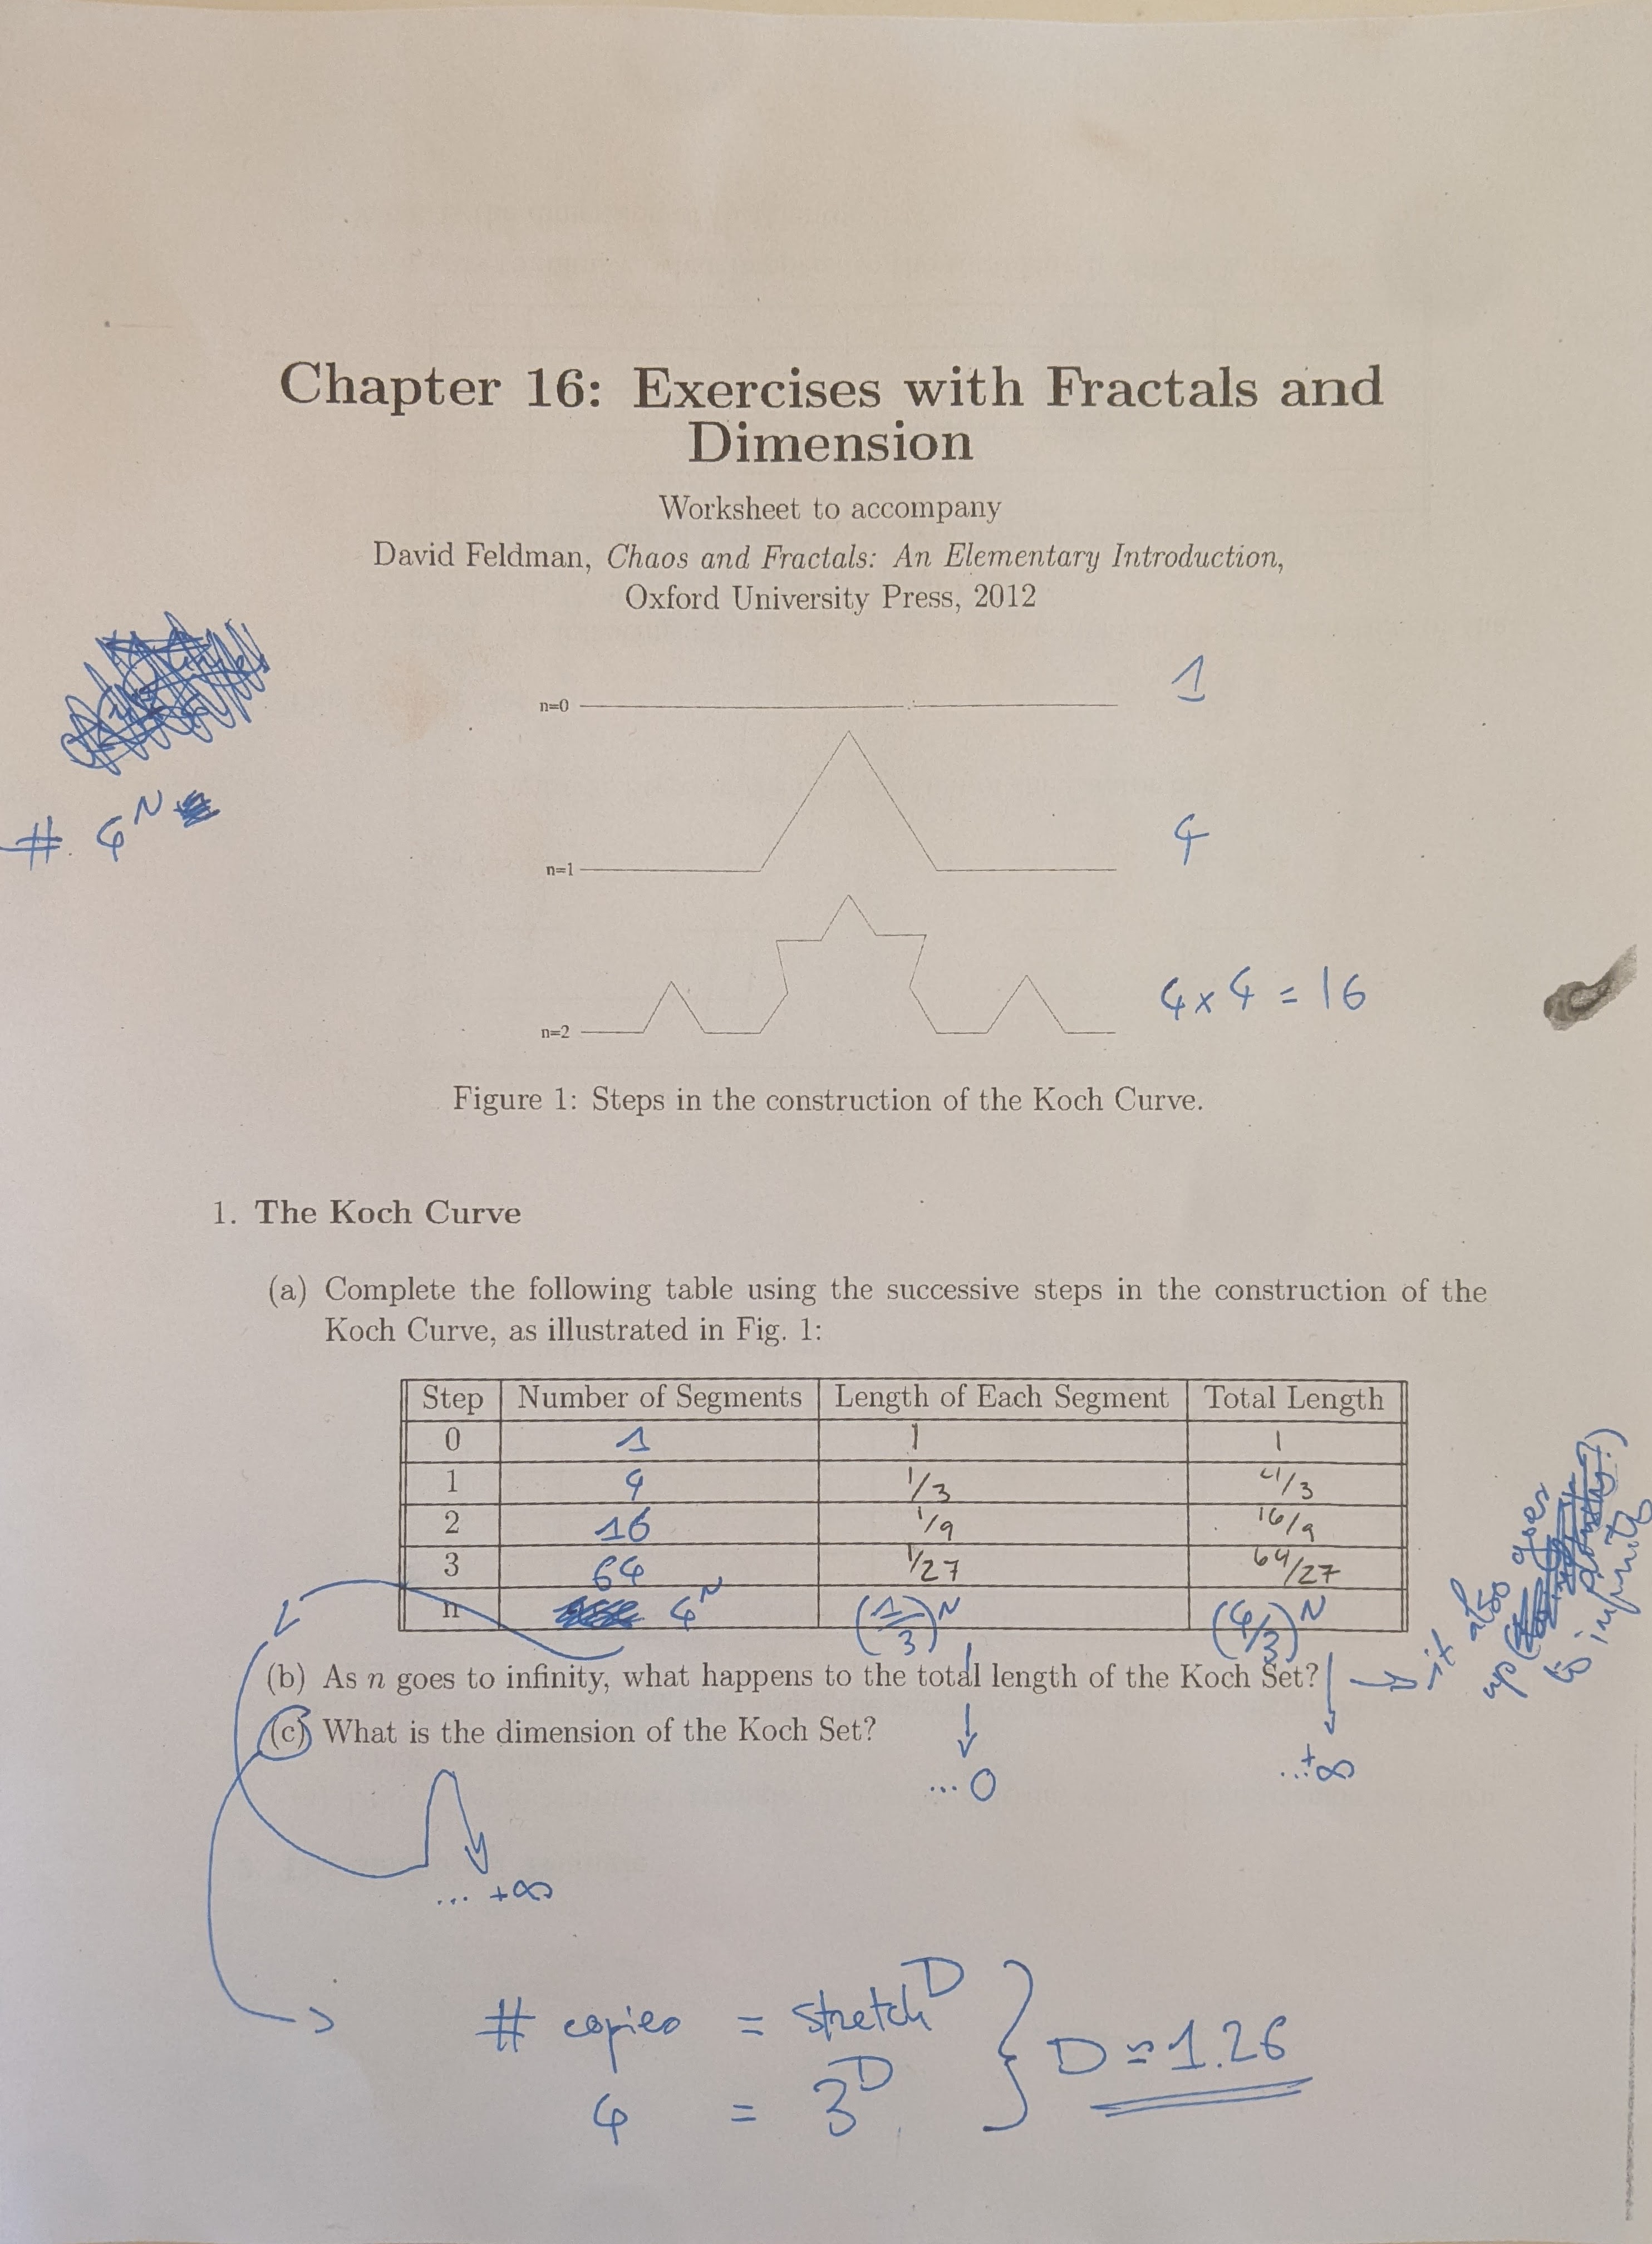 Chapter 16: Exercises with Fractals and
Dimension
Worksheet to accompany
David Feldman, Chaos and Fractals: An Elementary Introduction,
Oxford University Press, 2012
# 4^N
n=0 1
n=1 4
n=2 4 x 4 = 16
Figure 1: Steps in the construction of the Koch Curve.
1. The Koch Curve
(a) Complete the following table using the successive steps in the construction of the
Koch Curve, as illustrated in Fig. 1:
Step Number of Segments Length of Each Segment Total Length
0 1 1 1
1 4 1/3 4/3
2 16 1/9 16/9
3 64 1/27 64/27
n 4^N (1/3)^N (4/3)^N
(b) As n goes to infinity, what happens to the total length of the Koch Set?
→ it also goes
up
to infinity
(c) What is the dimension of the Koch Set?
... 0
... +∞
... +∞
# copies = stretch^D
4 = 3^D
D ≈ 1.26